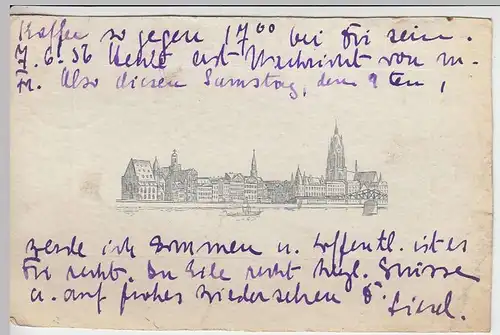 Kaffee so gegen 17 00 bei Fri sein.
7.6.56 Heute erst Nachricht von m-
r. Also diesen Samstag, den 9ten,
werde ich kommen u. hoffentl. ist es
Fri recht. In Eile recht herzl. Grüsse
u. auf frohes Wiedersehen
Liesel.